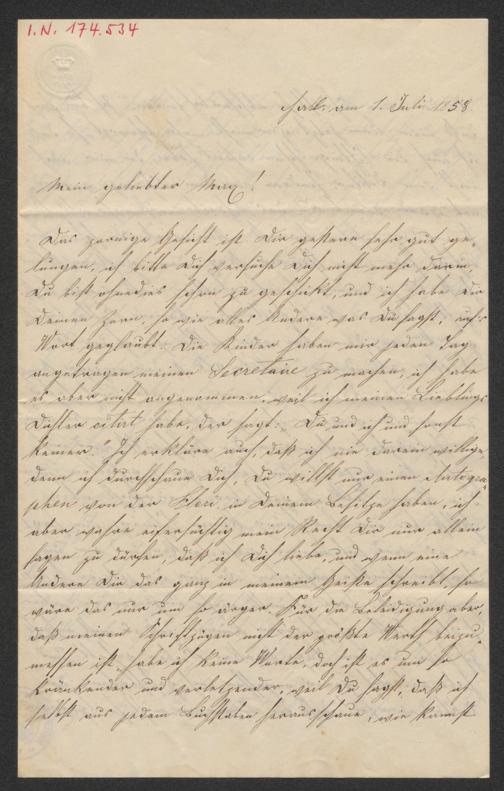 I.N. 174.534
am 1. Juli 1858
Mein geliebter Max!
Das zornige Gesicht ist Dir gestern sehr gut ge-
lungen, ich bitte Dich versuche Dich nicht mehr darin,
Du bist ohnedies schon zu geschickt, und ich habe Dir
Deinen Zorn, so wie alles Andere was Du sagst, auf's
Wort geglaubt. Die Kinder haben mir jeden Tag
angetragen meinen Secretaire zu machen, ich habe
es aber nicht angenommen, weil ich meinen Lieblings
Dichter citirt habe, der sagt: "Du und ich und sonst
keiner". Ich erkläre auch, daß ich nie darein willige
denn ich durchschaue Dich, Du willst nur einen Autogra-
phen von der Fleri in Deinem Besitze haben, ich
aber wahre eifersüchtig mein Recht Dir nur allein
sagen zu dürfen, daß ich Dich liebe, und wenn eine
Andere Dir das ganz in meinem Geiste schreibt, so
wäre das nur um so ärger. Für die Beleidigung aber,
daß meinen Schriftzügen nicht der größte Werth beizu-
messen ist, habe ich keine Worte, doch ist es um so
kränkender und verletzender, weil Du sagst, daß ich
selbst aus jedem Buchstaben herausschaue, wie kannst